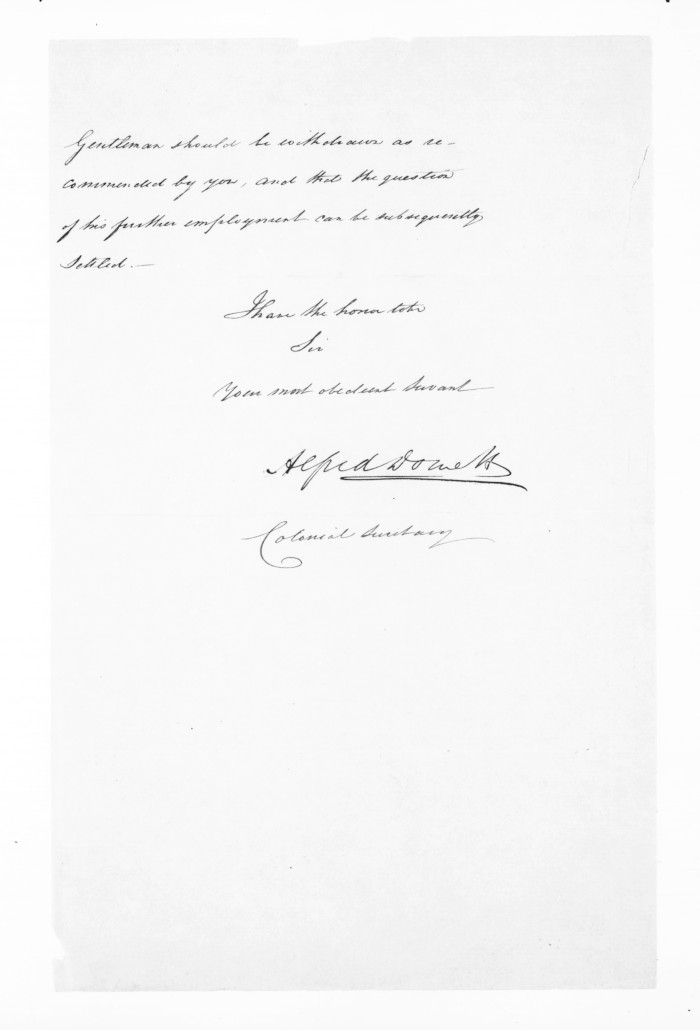 Gentleman should be withdrawn as re-
commended by you, and that the question
of his further employment can be subsequently
settled.—
I have the honor to be
Sir
Your most obedient Servant
Alfred Domett
Colonial Secretary